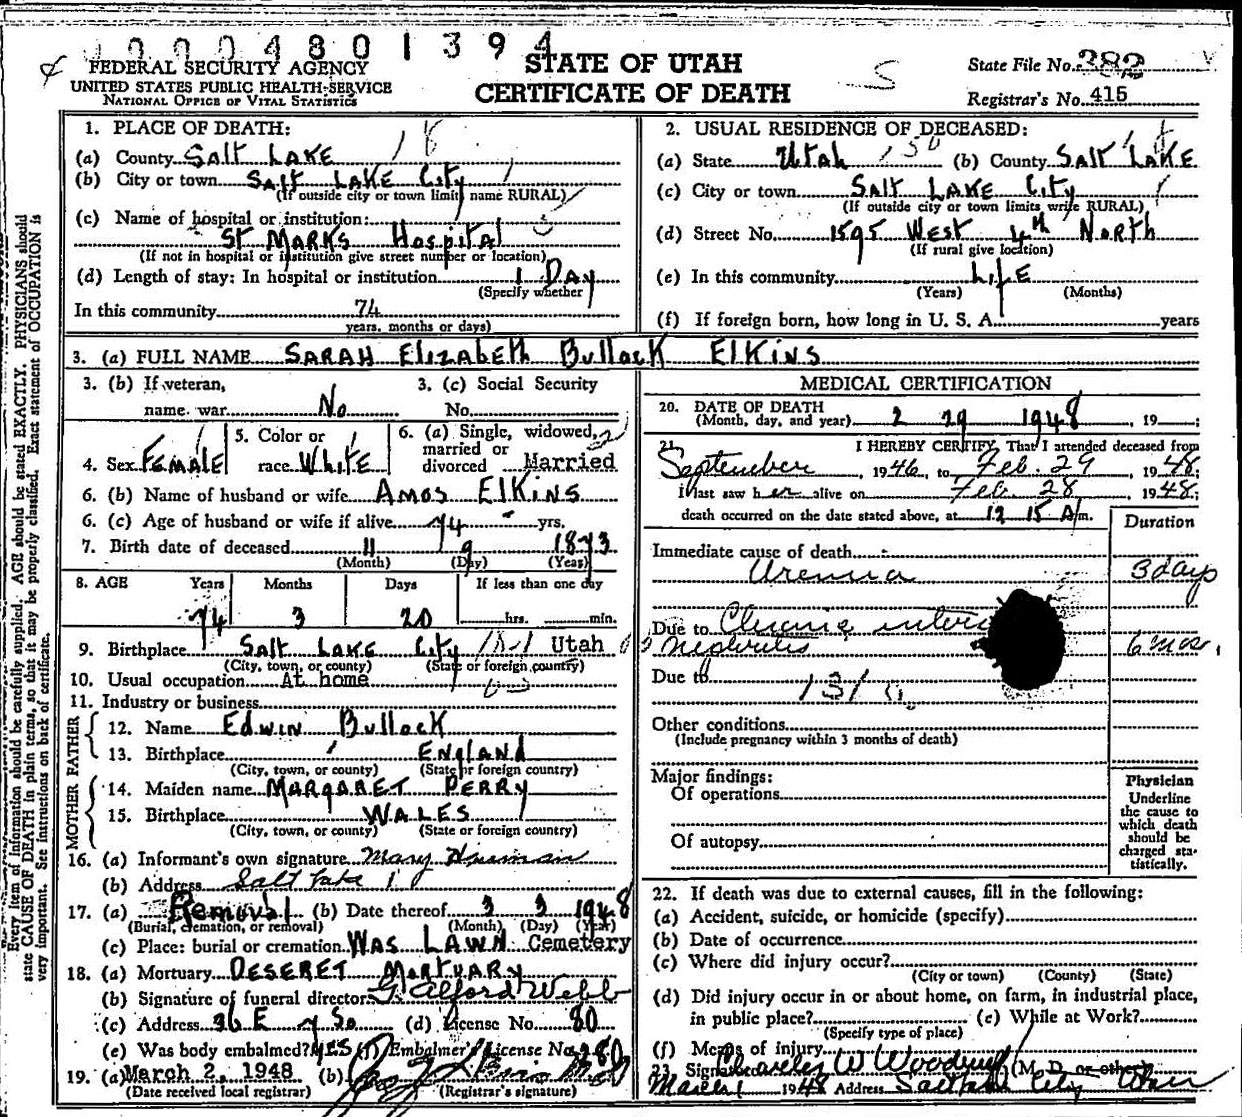 0004801394
FEDERAL SECURITY AGENCY
UNITED STATES PUBLIC HEALTH SERVICE
NATIONAL OFFICE OF VITAL STATISTICS
STATE OF UTAH
CERTIFICATE OF DEATH
State File No. 382
Registrar's No. 415
1. PLACE OF DEATH:
(a) County SALT LAKE
(b) City or town SALT LAKE City
(If outside city or town limits name RURAL)
(c) Name of hospital or institution:
St MARKS Hospital
(If not in hospital or institution give street number or location)
(d) Length of stay: In hospital or institution 1 DAY
(Specify whether
In this community 74
years, months or days)
2. USUAL RESIDENCE OF DECEASED:
(a) State Utah (b) County SALT LAKE
(c) City or town SALT LAKE City
(If outside city or town limits write RURAL)
(d) Street No. 1595 West 4th North
(If rural give location)
(e) In this community LIFE
(Years) (Months)
(f) If foreign born, how long in U. S. A. years
3. (a) FULL NAME SARAH ElizABEth Bullock ElkiNS
3. (b) If veteran,
name war No
3. (c) Social Security
No.
4. Sex FEMALE
5. Color or
race White
6. (a) Single, widowed,
married or
divorced Married
6. (b) Name of husband or wife AMOS ElkiNS
6. (c) Age of husband or wife if alive 74 yrs.
7. Birth date of deceased 11 9 1873
(Month) (Day) (Year)
8. AGE Years Months Days If less than one day
74 3 20 hrs. min.
9. Birthplace SALT LAKE City Utah
(City, town, or county) (State or foreign country)
10. Usual occupation At home
11. Industry or business
FATHER
12. Name EdwiN Bullock
13. Birthplace ENglANd
(City, town, or county) (State or foreign country)
MOTHER
14. Maiden name MARGARET PERRY
15. Birthplace WALES
(City, town, or county) (State or foreign country)
16. (a) Informant's own signature Mary
(b) Address Salt Lake
17. (a) Removal (b) Date thereof 3 3 1948
(Burial, cremation, or removal) (Month) (Day) (Year)
(c) Place: burial or cremation WAS LAWN Cemetery
18. (a) Mortuary DESERET MORTUARY
(b) Signature of funeral director G Alford Webb
(c) Address 36 E 7 So (d) License No. 80
(e) Was body embalmed? YES (f) Embalmer's License No. 280
19. (a) March 2, 1948 (b)
(Date received local registrar) (Registrar's signature)
MEDICAL CERTIFICATION
20. DATE OF DEATH
(Month, day, and year) 2 29 1948, 19 ;
21. I HEREBY CERTIFY, That I attended deceased from
September, 1946, to Feb. 29, 1948;
I last saw her alive on Feb. 28, 1948;
death occurred on the date stated above, at 12 15 A m.
Duration
Immediate cause of death
Uremia 3 days
Due to Chronic
Nephritis 6 mos.
Due to
131 a
Other conditions
(Include pregnancy within 3 months of death)
Major findings:
Of operations
Of autopsy
Physician
Underline
the cause to
which death
should be
charged sta-
tistically.
22. If death was due to external causes, fill in the following:
(a) Accident, suicide, or homicide (specify)
(b) Date of occurrence
(c) Where did injury occur?
(City or town) (County) (State)
(d) Did injury occur in or about home, on farm, in industrial place,
in public place? (e) While at Work?
(Specify type of place)
(f) Means of injury
23. Signature Charles W Woodruff (M. D. or other)
March 1 1948 Address Salt Lake City Utah
Every item of information should be carefully supplied. AGE should be stated EXACTLY. PHYSICIANS should
state CAUSE OF DEATH in plain terms, so that it may be properly classified. Exact statement of OCCUPATION is
very important. See instructions on back of certificate.